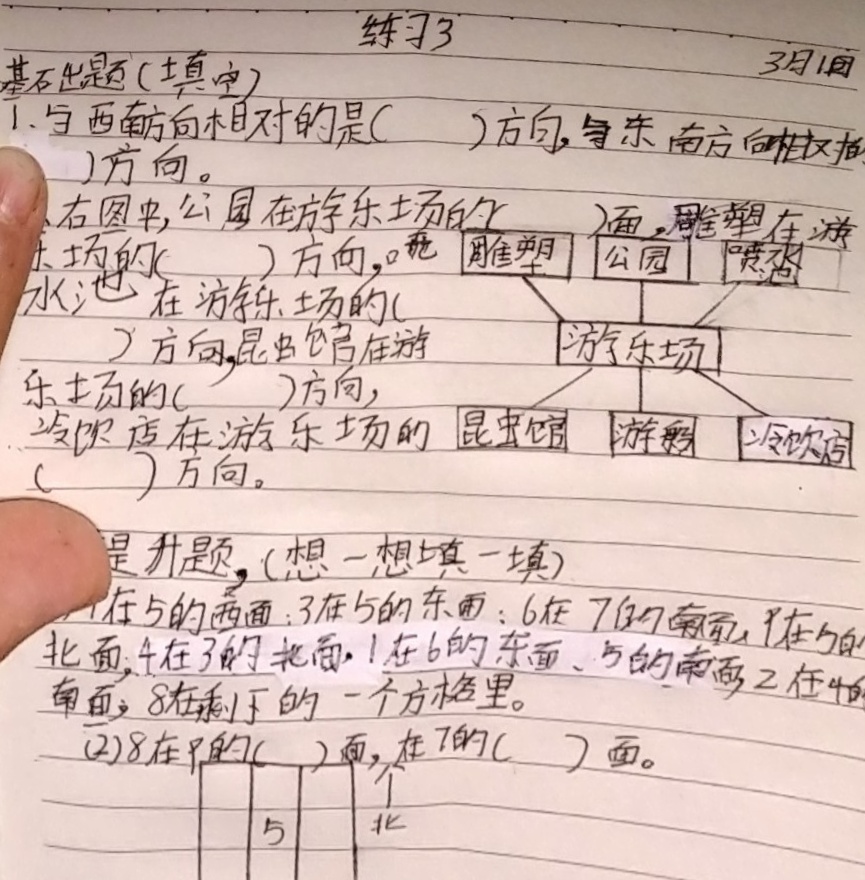 练习3
3月1日
基石出题(填空)
1.与西南方向相对的是( )方向,与东南方向相对
)方向。
右图中,公园在游乐土场的( )面,雕塑在游
乐土场的( )方向。喷
雕塑 公园 喷水池
水池在游乐土场的(
)方向,昆虫馆在游
游乐土场
乐土场的( )方向,
冷饮店在游乐土场的
昆虫馆 游船 冷饮店
( )方向。
提升题,(想一想填一填)
7在5的西面;3在5的东面;6在7的南面,9在5的
北面;4在3的北面.1在6的东面、5的南面,2在4的
南面;8在剩下的一个方格里。
(2)8在9的( )面,在7的( )面。
5
北